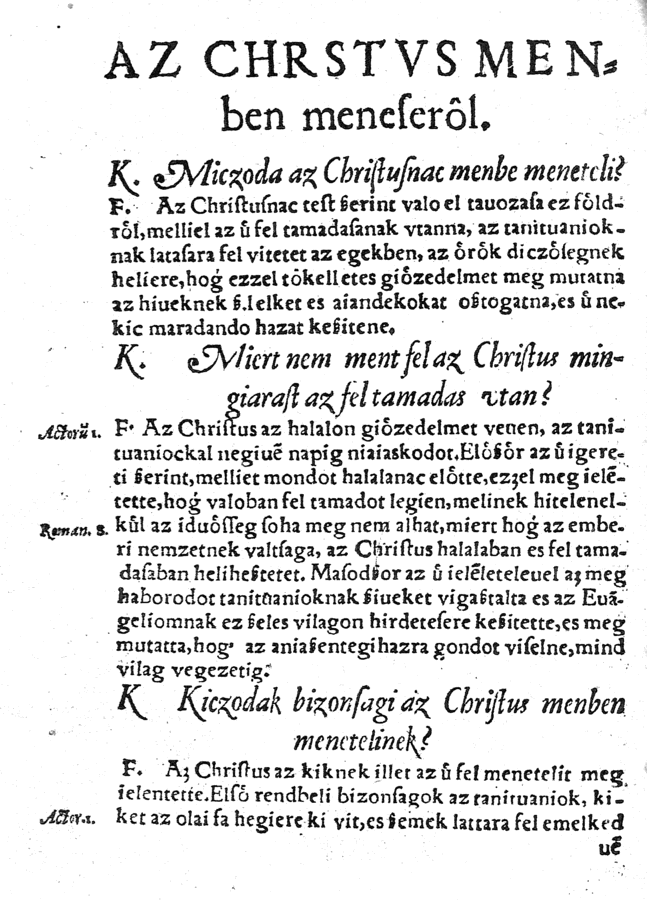 AZ CHRSTVS MEN⸗
ben meneſerôl.
K. Miczoda az Chriſtuſnac menbe meneteli?
F. Az Chriſtuſnac teſt ßerint valo el tauozaſa ez fôld-
rôl, melliel az û fel tamadaſanak vtanna, az tanituaniok-
nak lataſara fel vitetet az egekben, az ôrôk diczôſegnek
heliere, hoǵ ezzel tôkelletes giôzedelmet meg mutatna
az hiueknek ß. lelket es aiandekokat oßtogatna, es û ne-
kic maradando hazat keßitene.
K. Miert nem ment fel az Chriſtus min-
giaraſt az fel tamadas vtan?
Actorũ 1. F. Az Chriſtus az halalon giôzedelmet veuen, az tani-
tuaniockal negiuẽ napig niaiaskodot. Elôßôr az û igere-
ti ßerint, melliet mondot halalanac elôtte, ezʒel meg ielẽ-
tette, hoǵ valoban fel tamadot legien, melinek hitelenel-
Roman. 8. kûl az iduôſſeg ſoha meg nem alhat, miert hoǵ az embe-
ri nemzetnek valtſaga, az Chriſtus halalaban es fel tama-
daſaban heliheßtetet. Maſodßor az û ielẽleteleuel aʒ meg
haborodot tanituanioknak ßiueket vigaßtalta es az Euã-
geliomnak ez ßeles vilagon hirdeteſere keßitette, es meg
mutatta, hoǵ az aniaßentegihazra gondot viſelne, mind
vilag vegezetig.
K Kiczodak bizonſagi az Chriſtus menben
menetelinek?
F. Aʒ Chriſtus az kiknek illet az û fel meneteſit meg
ielentette. Elſô rendbeli bizonſagok az tanituaniok, ki-
Actor. 1. ket az olai fa hegiere ki vit, es ßemek lattara fel emelked
uẽ